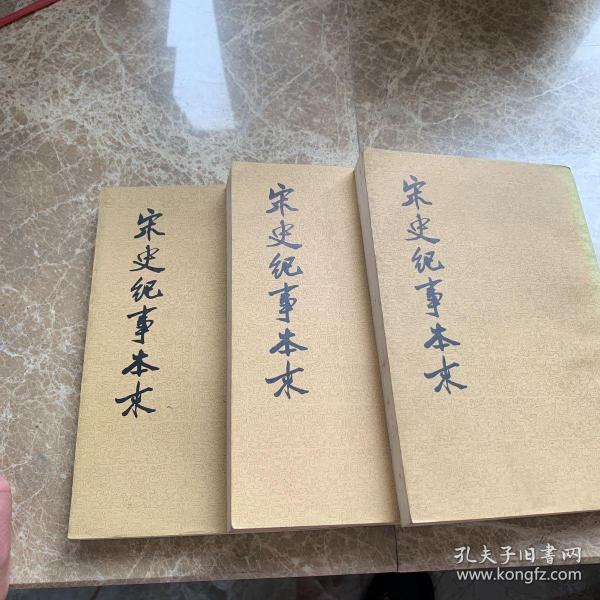 宋史纪事本末
宋史纪事本末
宋史纪事本末
孔夫子旧書网
www.kongfz.com